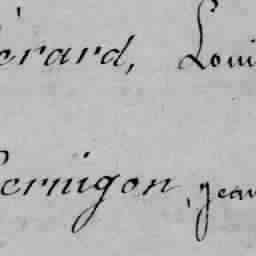 érard, Loui
ernigon, jean